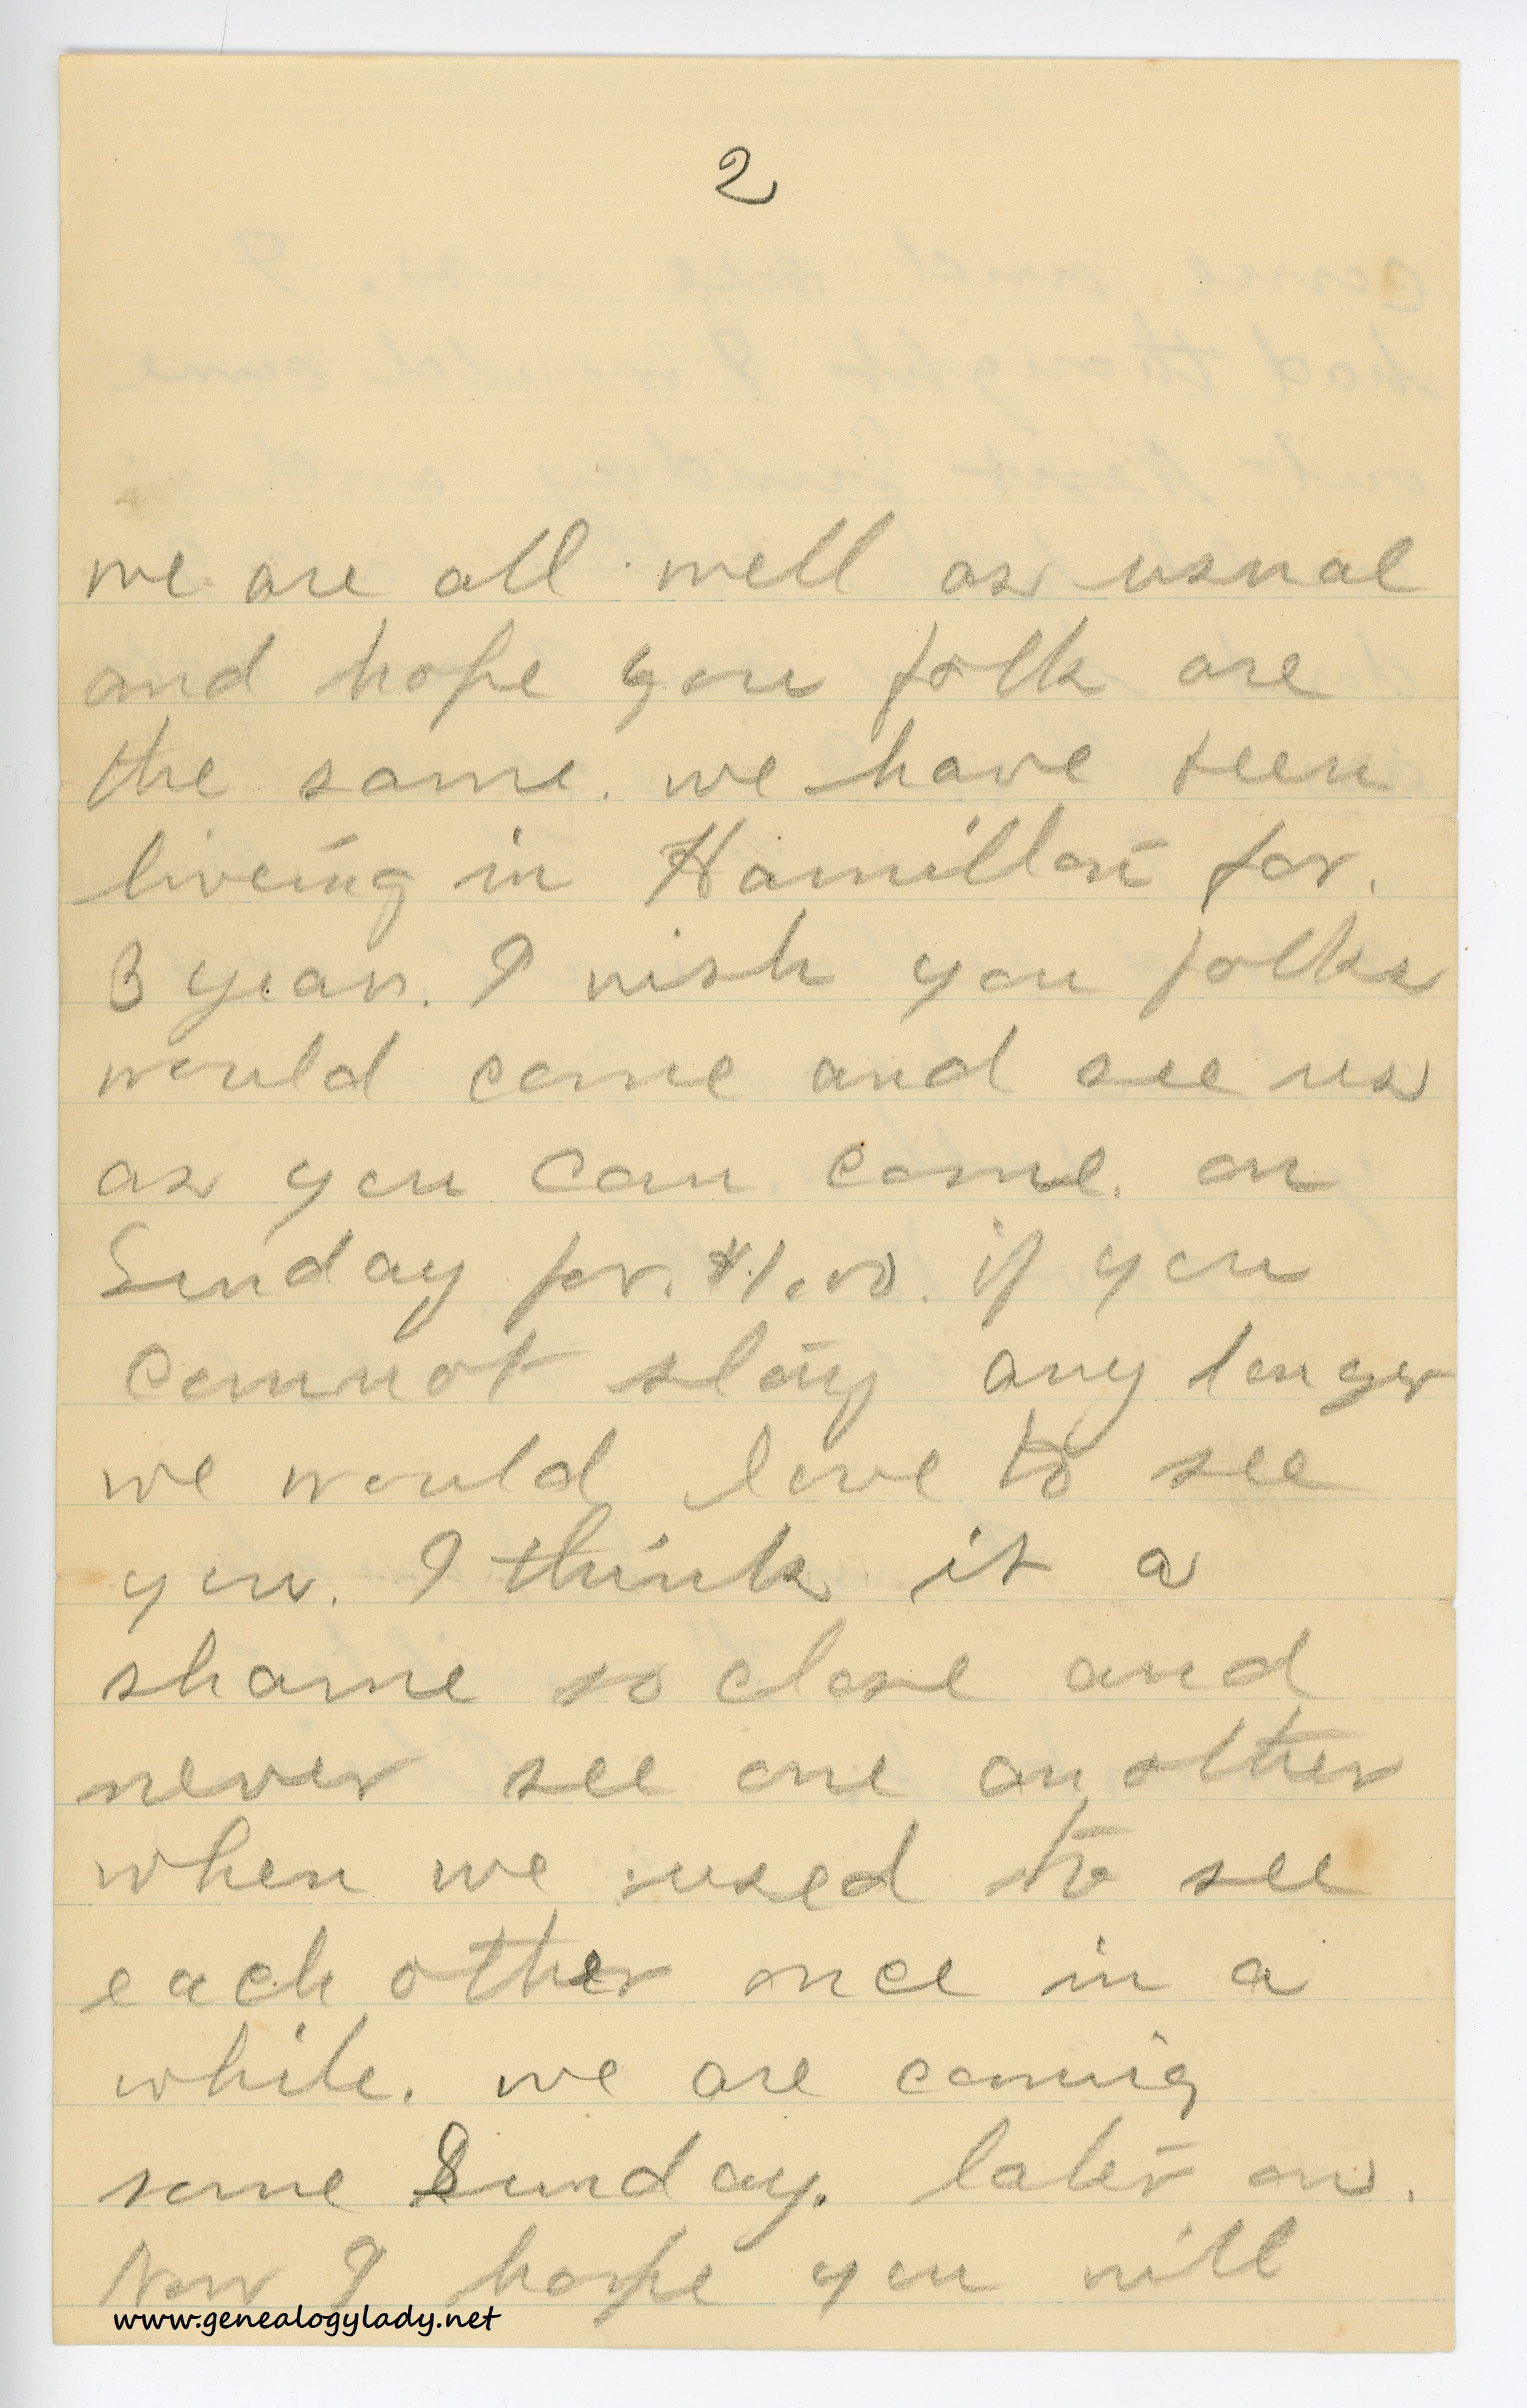 2
we are all well as usual
and hope you folk are
the same. we have been
liveing in Hamilton for.
3 year. I wish you folks
would come and see us
as you can come. on
Sunday for. $1.00. if you
cannot stay any longer
we would love to see
you. I think it a
shame so close and
never see one another
when we used to see
each other once in a
while. we are coming
some Sunday. later on.
Now I hope you will
www.genealogylady.net